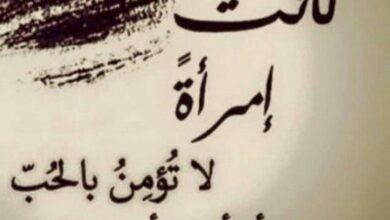 كانت
إمرأةً
لا تُؤمِنُ بالحُبّ